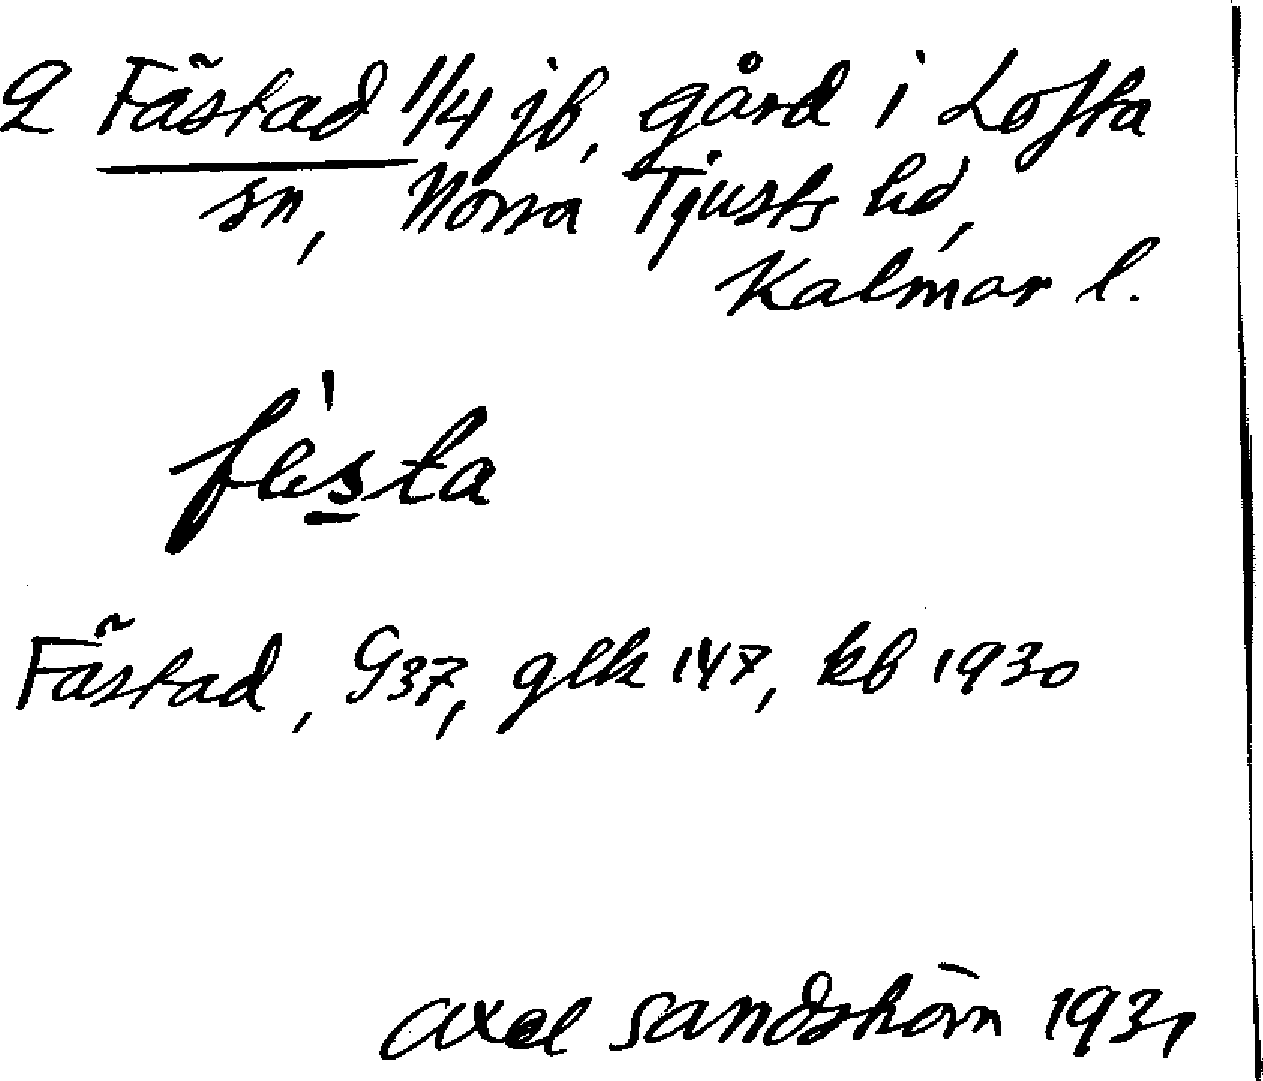 2 Fästad 1/4 jb, gård i Lofta
sn, Norra Tjusts hd,
Kalmar l.
fèsta
Fästad, G37, glk 147, kb 1930
Axel Sandström 1931